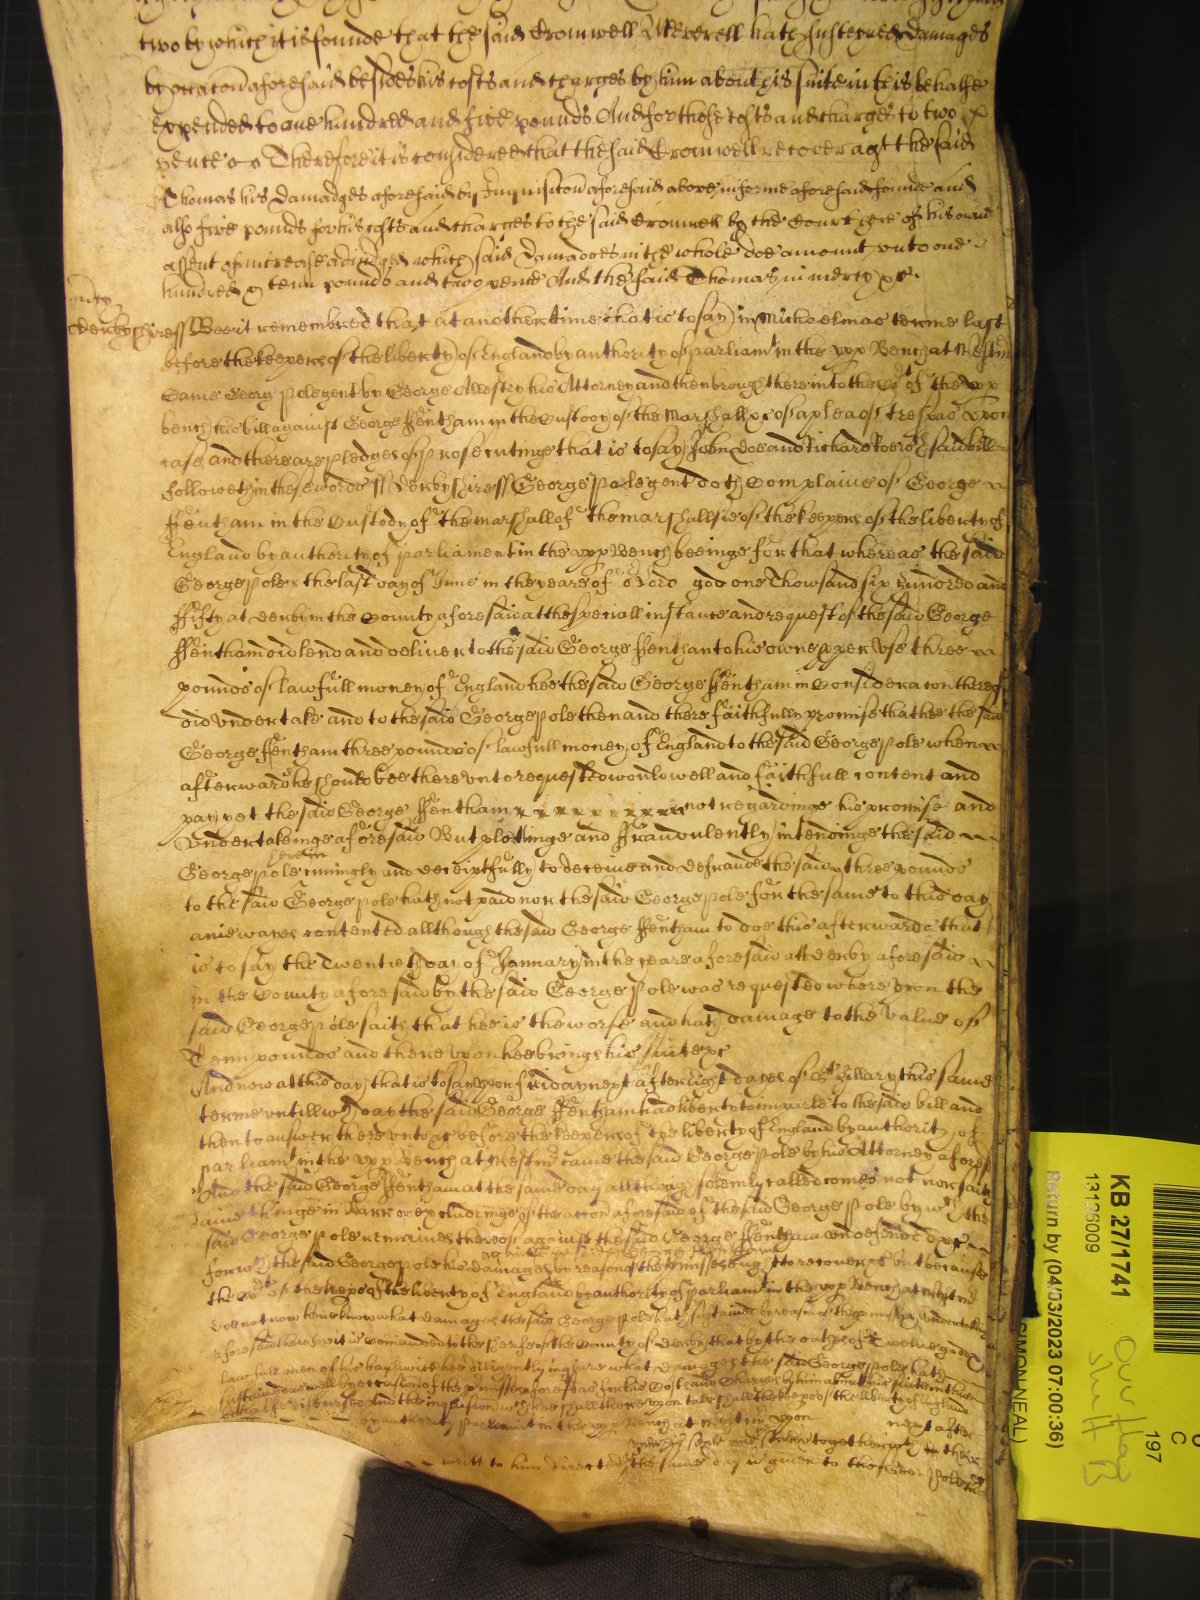 two by which it is founde that the said Cromwell Meverell hath susteyned damages
by occacon aforesaid besides his costs and charges by him about his suite in this behalfe
expended to one hundred and five pounds And for those costs and charges to two
pence Therefore it is considered that the said Cromwell recover agt the said
Thomas his damadges aforesaid by Inquisicon aforesaid above in forme aforesaid founde and
also five pounds for his costs and charges to the said Cromwell by the Court here of his owne
assent of increase adiudged which said damadges in the whole doe amount unto one
hundred & tenn pounds and two pence And the said Thomas in mercy &c.
Derbyshire ss Bee it remembred that at another time that is to say in Michaelmas terme last
before the keepers of the liberty of England by authority of parliamt in the upp Bench at Westmr
came George Pole gent by George Allestry his Attorney and then brought here into the Cort of the upp
bench his bill against George Ffentham in the Custody of the Marshall &c of a plea of trespas upon
case and there are pledges of prosecutinge that is to say John Doe and Richard Roe wch said bill
followeth in these words ss Derbyshire ss George Pole gent doth Complaine of George
Ffentham in the Custody of the marshall of the marshallsie of the keepers of the liberty of
England by authority of parliament in the upp Bench beeinge for that whereas the said
George Pole the last day of June in the yeare of or Lord god one Thowsand six hundred and
Ffifty at derby in the County aforesaid at the speciall instance and request of the said George
Ffentham did lend and deliver to the said George Ffentham to his owne pper use three
pounds of lawfull money of England hee the said George Ffentham in Consideracon thereof
did undertake and to the said George Pole then and there faithfully promise that hee the said
George Ffentham three pounds of lawfull money of England to the said George Pole when
afterwards he should bee thereunto requested would well and faithfull content and
pay yet the said George Ffentham x x x x x x x x x not regardinge his promise and
Undertakeinge aforesaid But plottinge and ffraudulently intendinge the said
George Pole cuningly and deceiptfully to deceive and defraude the said three pounds
therein
to the said George Pole hath not paid nor the said George Pole for the same to this day
anie wayes contented allthough the said George Ffentham to doe this afterwards that
is to say the Twentieth day of January in the yeare aforesaid att derby aforesaid
in the County aforesaid by the said George Pole was requested whereupon the
said George Pole saith that hee is the worse and hath damage to the value of
Tenn pounds and thereupon hee brings his suite &c
And now at this day that is to say upon friday next after eight dayes of St Hillary this same
terme untill wch day the said George Ffentham had liberty to imparle to the said bill and
then to answer thereunto &c before the keepers of the liberty of England by authority of
parliamt in the upp Bench at Westmr came the said George Pole by his Attorney aforesd
And the said George Ffentham at the same day allthough solemly called comes not nor saith
anie thinge in barr or excludeinge of the accon aforesaid of the said George Pole by wch the
said George Pole remaines thereof against the said George Ffentham undefended &c
for wch the said George Pole his damages by reason of the premisses ought to recover &c but because
the Cort of the keeps of the liberty of England by authority of parliamt in the upp Bench at Westmr
doe not now here know what damages the said George Pole hath susteined by reason of the premisses
aforesaid therefore it is Comanded to the sherife of the County of derby that by the oathes of Twelve good
lawfull men of his bayliwick hee diligently inquire what damages the said George Pole hath
sustained as well by occasion of the premisses aforesd as for his Costs and Charges by him about his suite in this
behalfe disbursed And the inquisition wch hee shall thereupon take shall the keeps of the liberty of England
by authority Parliamt in the upp Bench at Westmr upon next after
under his seale and seales together wth their
writt to him directed the same day is given to the said George Pole there
KB 27/1741
13126009
Return by (04/03/2023 07:00:36)
(SIMON NEAL)
197
C